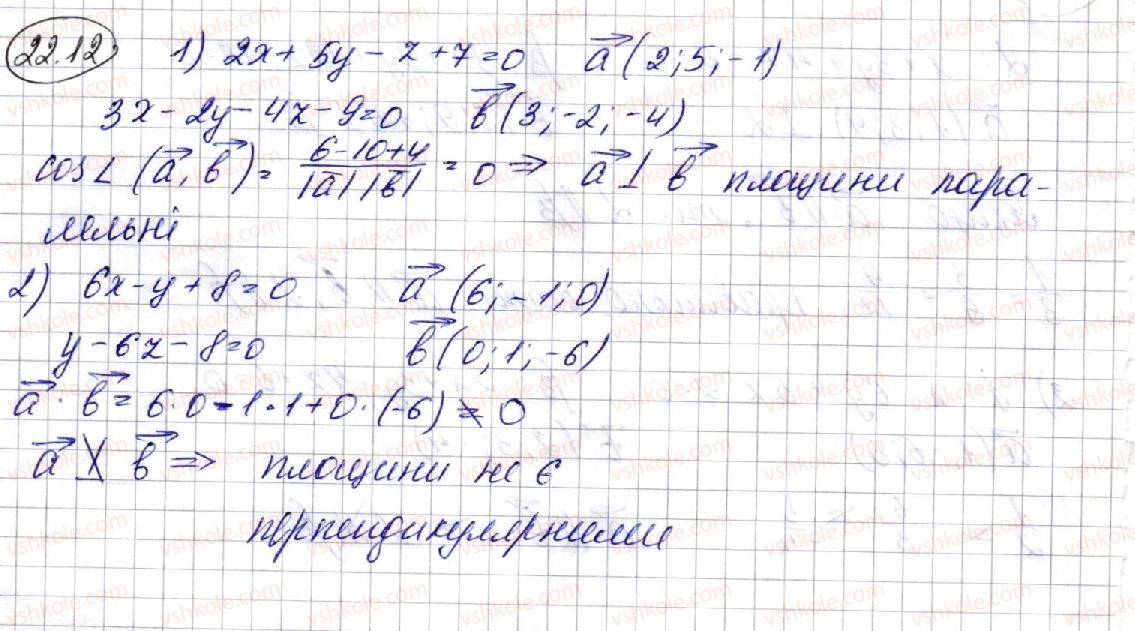 22.12. 1) 2x + 5y - z + 7 = 0 a⃗ (2; 5; -1)
3x - 2y - 4z - 9 = 0 b⃗ (3; -2; -4)
cos∠ (a⃗, b⃗) = (6-10+4)/(|a⃗| |b⃗|) = 0 ⇒ a⃗ ⊥ b⃗ площини пара-
лельні
2) 6x - y + 8 = 0 a⃗ (6; -1; 0)
y - 6z - 8 = 0 b⃗ (0; 1; -6)
a⃗ · b⃗ = 6·0 - 1·1 + 0·(-6) ≠ 0
a⃗ ⊥̸ b⃗ ⇒ площини не є
перпендикулярними